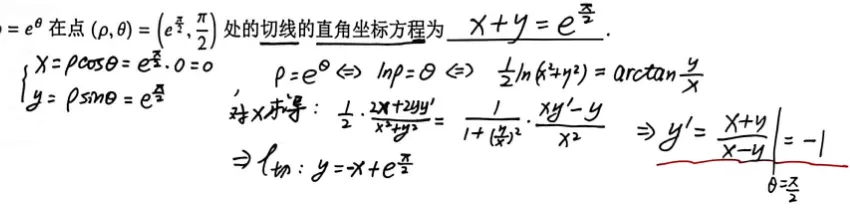 = e^θ 在点 (ρ, θ) = (e^{π/2}, π/2) 处的切线的直角坐标方程为 x+y=e^{π/2} .
{ x=ρcosθ=e^{π/2}·0=0
y=ρsinθ=e^{π/2}
ρ=e^θ ⇔ lnρ=θ ⇔ 1/2 ln(x²+y²) = arctan y/x
对x求导: 1/2 · (2x+2yy')/(x²+y²) = 1/(1+(y/x)²) · (xy'-y)/x² ⇒ y' = (x+y)/(x-y) |_{θ=π/2} = -1
⇒ l切: y=-x+e^{π/2}